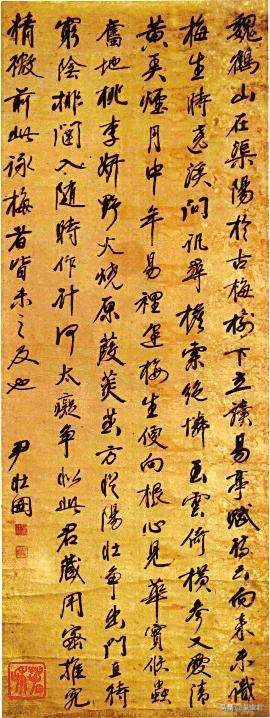 魏鶴山在渠陽於古梅樹下立讀易亭賦詩云向來未識
梅生時遶溪問訊尋檐索絕憐玉雲倚橫參又愛清
黃英煙月中年易裡逢梅生便向根心見華實候蟲
奮地桃李妍野火燒原葭菼茁方從陽壯爭出門直待
窮陰排闥入隨時作計何太癡爭似此君藏用密推究
精微前此詠梅者皆未之及也
尹壯圖